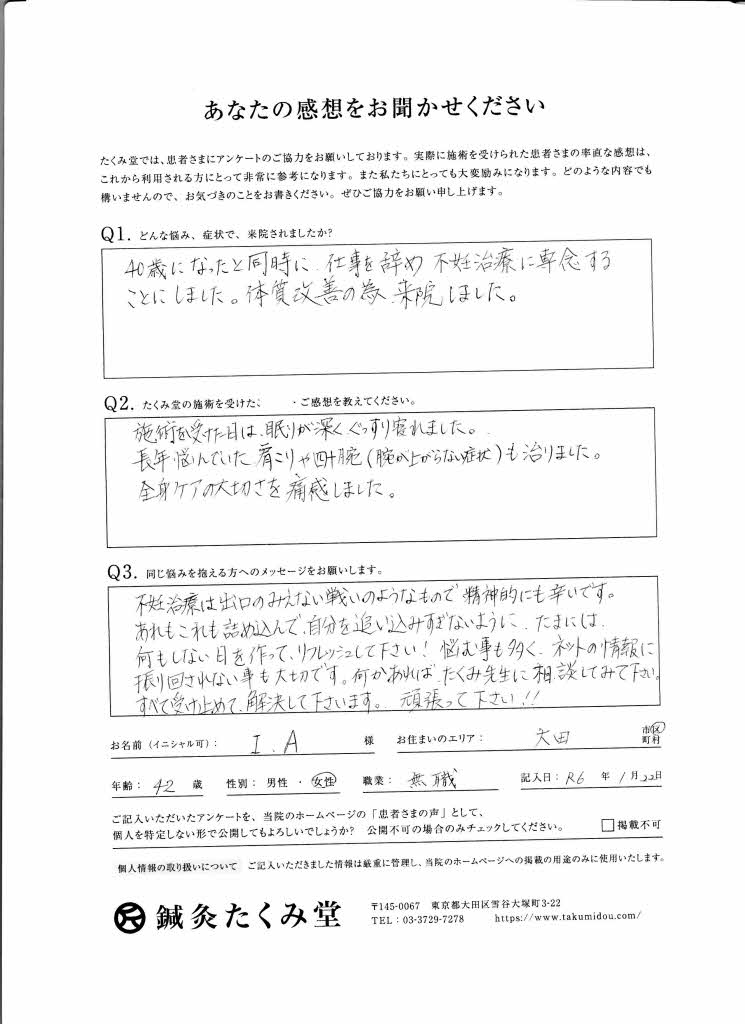 あなたの感想をお聞かせください
たくみ堂では、患者さまにアンケートのご協力をお願いしております。実際に施術を受けられた患者さまの率直な感想は、
これから利用される方にとって非常に参考になります。また私たちにとっても大変励みになります。どのような内容でも
構いませんので、お気づきのことをお書きください。ぜひご協力をお願い申し上げます。
Q1. どんな悩み、症状で、来院されましたか?
40歳になったと同時に、仕事を辞め 不妊治療に専念する
ことにしました。体質改善の為、来院しました。
Q2. たくみ堂の施術を受けた、 ・ご感想を教えてください。
施術を受けた日は、眠りが深く ぐっすり寝れました。
長年悩んでいた 肩こりや四十腕(腕が上がらない症状)も治りました。
全身ケアの大切さを痛感しました。
Q3. 同じ悩みを抱える方へのメッセージをお願いします。
不妊治療は出口のみえない戦いのようなもので 精神的にも辛いです。
あれもこれも詰め込んで、自分を追い込みすぎないように、たまには、
何もしない日を作って、リフレッシュして下さい! 悩む事も多く、ネットの情報に
振り回されない事も大切です。何かあれば、たくみ先生に相談してみて下さい。
すべて受け止めて、解決して下さいます。 頑張って下さい!!
お名前(イニシャル可): I.A 様 お住まいのエリア: 大田 市区町村
年齢: 42 歳 性別: 男性 ・ 女性 職業: 無職 記入日: R6 年 1月 22日
ご記入いただいたアンケートを、当院のホームページの「患者さまの声」として、
個人を特定しない形で公開してもよろしいでしょうか? 公開不可の場合のみチェックしてください。 □掲載不可
個人情報の取り扱いについて ご記入いただきました情報は厳重に管理し、当院のホームページへの掲載の用途のみに使用いたします。
鍼灸たくみ堂
〒145-0067 東京都大田区雪谷大塚町3-22
TEL:03-3729-7278 https://www.takumidou.com/